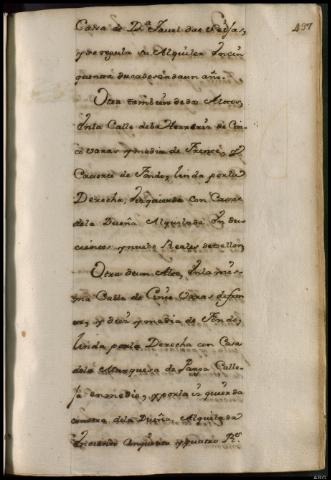 437
Casa de D.ª Isabel das Seijas,
y se regula su Alquiler In cin
quenta ducados cada un año.
Otra tambien de dos Altos,
Inla Calle dela Herreria de Cin
co varas y media de Frente, y
Catorce de Fondo, linda porla
Derecha, Izquierda con Casas
dela Dueña Alquilada In dus
cientos y nuebe Reales de vellon
Otra de un Alto, Inla mis
ma Calle de Cinco Varas de fren
te, y diez y media de Fondo,
linda porla Derecha con Casa
dela Marquesa de Parga Calle
ja en medio, y porla izquierda
con otra dela Dueña, Alquilada
In ciento cinquenta y quatro R.s